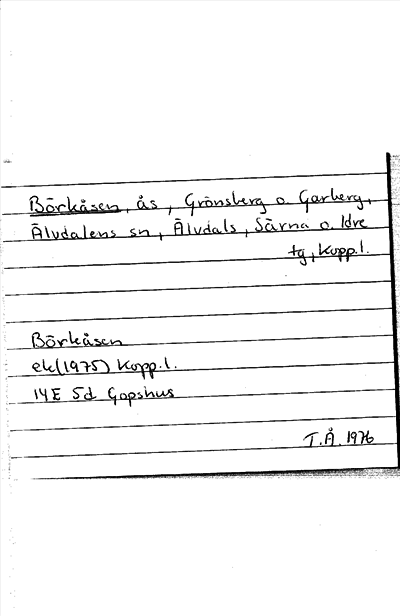 Börkåsen, ås, Grönsberg o. Garberg,
Älvdalens sn, Älvdals, Särna o. Idre
tg, Kopp.l.
Börkåsen
ek(1975) Kopp.l.
14E 5d Gopshus
T.Å. 1976